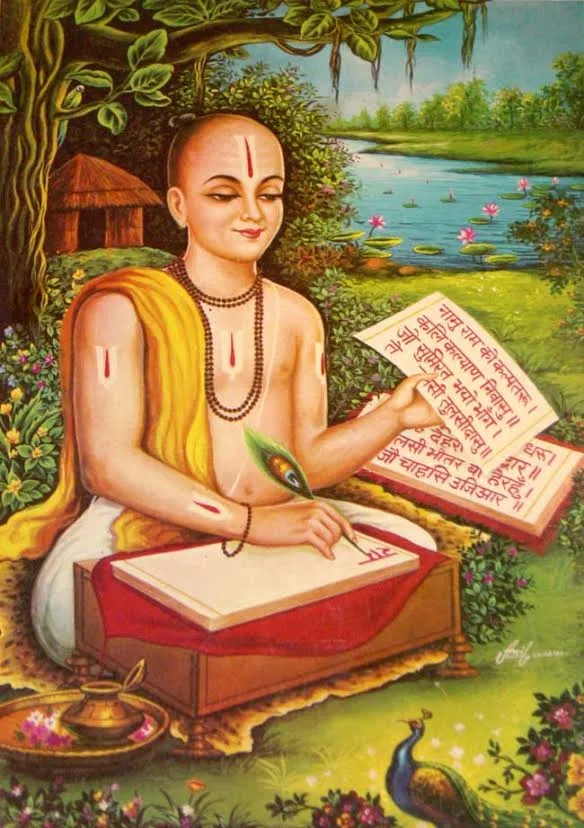 नामु राम को कल्पतरू ।
कलि कल्याण निवासु ॥
जो सुमिरत भयो भाँग ।
सी तुलसीदासु ॥
धरू ।
देहरी वार ॥
लसी भीतर बा हैरहुँ ।
जौ चाहसि उजिआर ॥